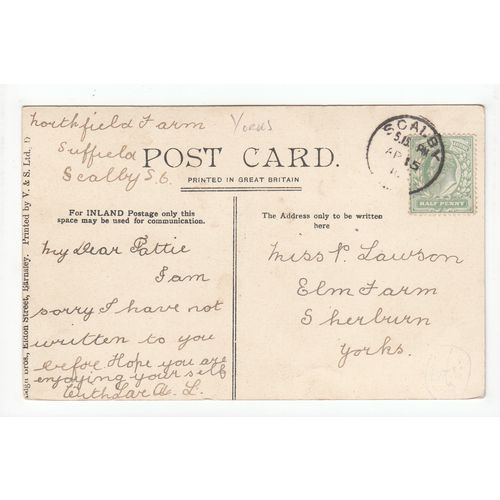 Northfield Farm
Yorks
Suffield
Scalby S.O.
POST CARD.
PRINTED IN GREAT BRITAIN
SCALBY
5.15 PM
AP 15
HALF PENNY
For INLAND Postage only this
space may be used for communication.
The Address only to be written
here
My Dear Pattie
I am
sorry I have not
written to you
before. Hope you are
enjoying yourself
With Love A. L.
Miss P. Lawson
Elm Farm
Sherburn
Yorks.
Bros., Eldon Street, Barnsley. Printed by V. & S. Ltd.